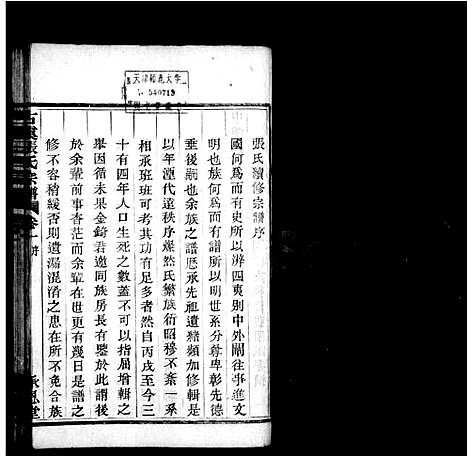 張氏續修宗譜序
國何爲而有史所以辨四夷別中外闢往事進文
明也族何爲而有譜所以明世系分尊卑彰先德
垂後嗣也余族之譜歷承先祖遺緒頻加修輯是
以年湮代遠秩序燦然氏繁族衍昭穆不紊一系
相承班班可考其功有足多者然自丙戌至今三
十有四年人口生死之數蓋不可以指屈增輯之
舉因循未果金錡君邀同族房長有鑒於此謂後
於余輩前事杳茫而余輩在世更有幾日是譜之
修不容稍緩否則遺漏混淆之患在所不免合族
古虞張氏宗譜
卷一序
承恩堂
天津師範大學
540719